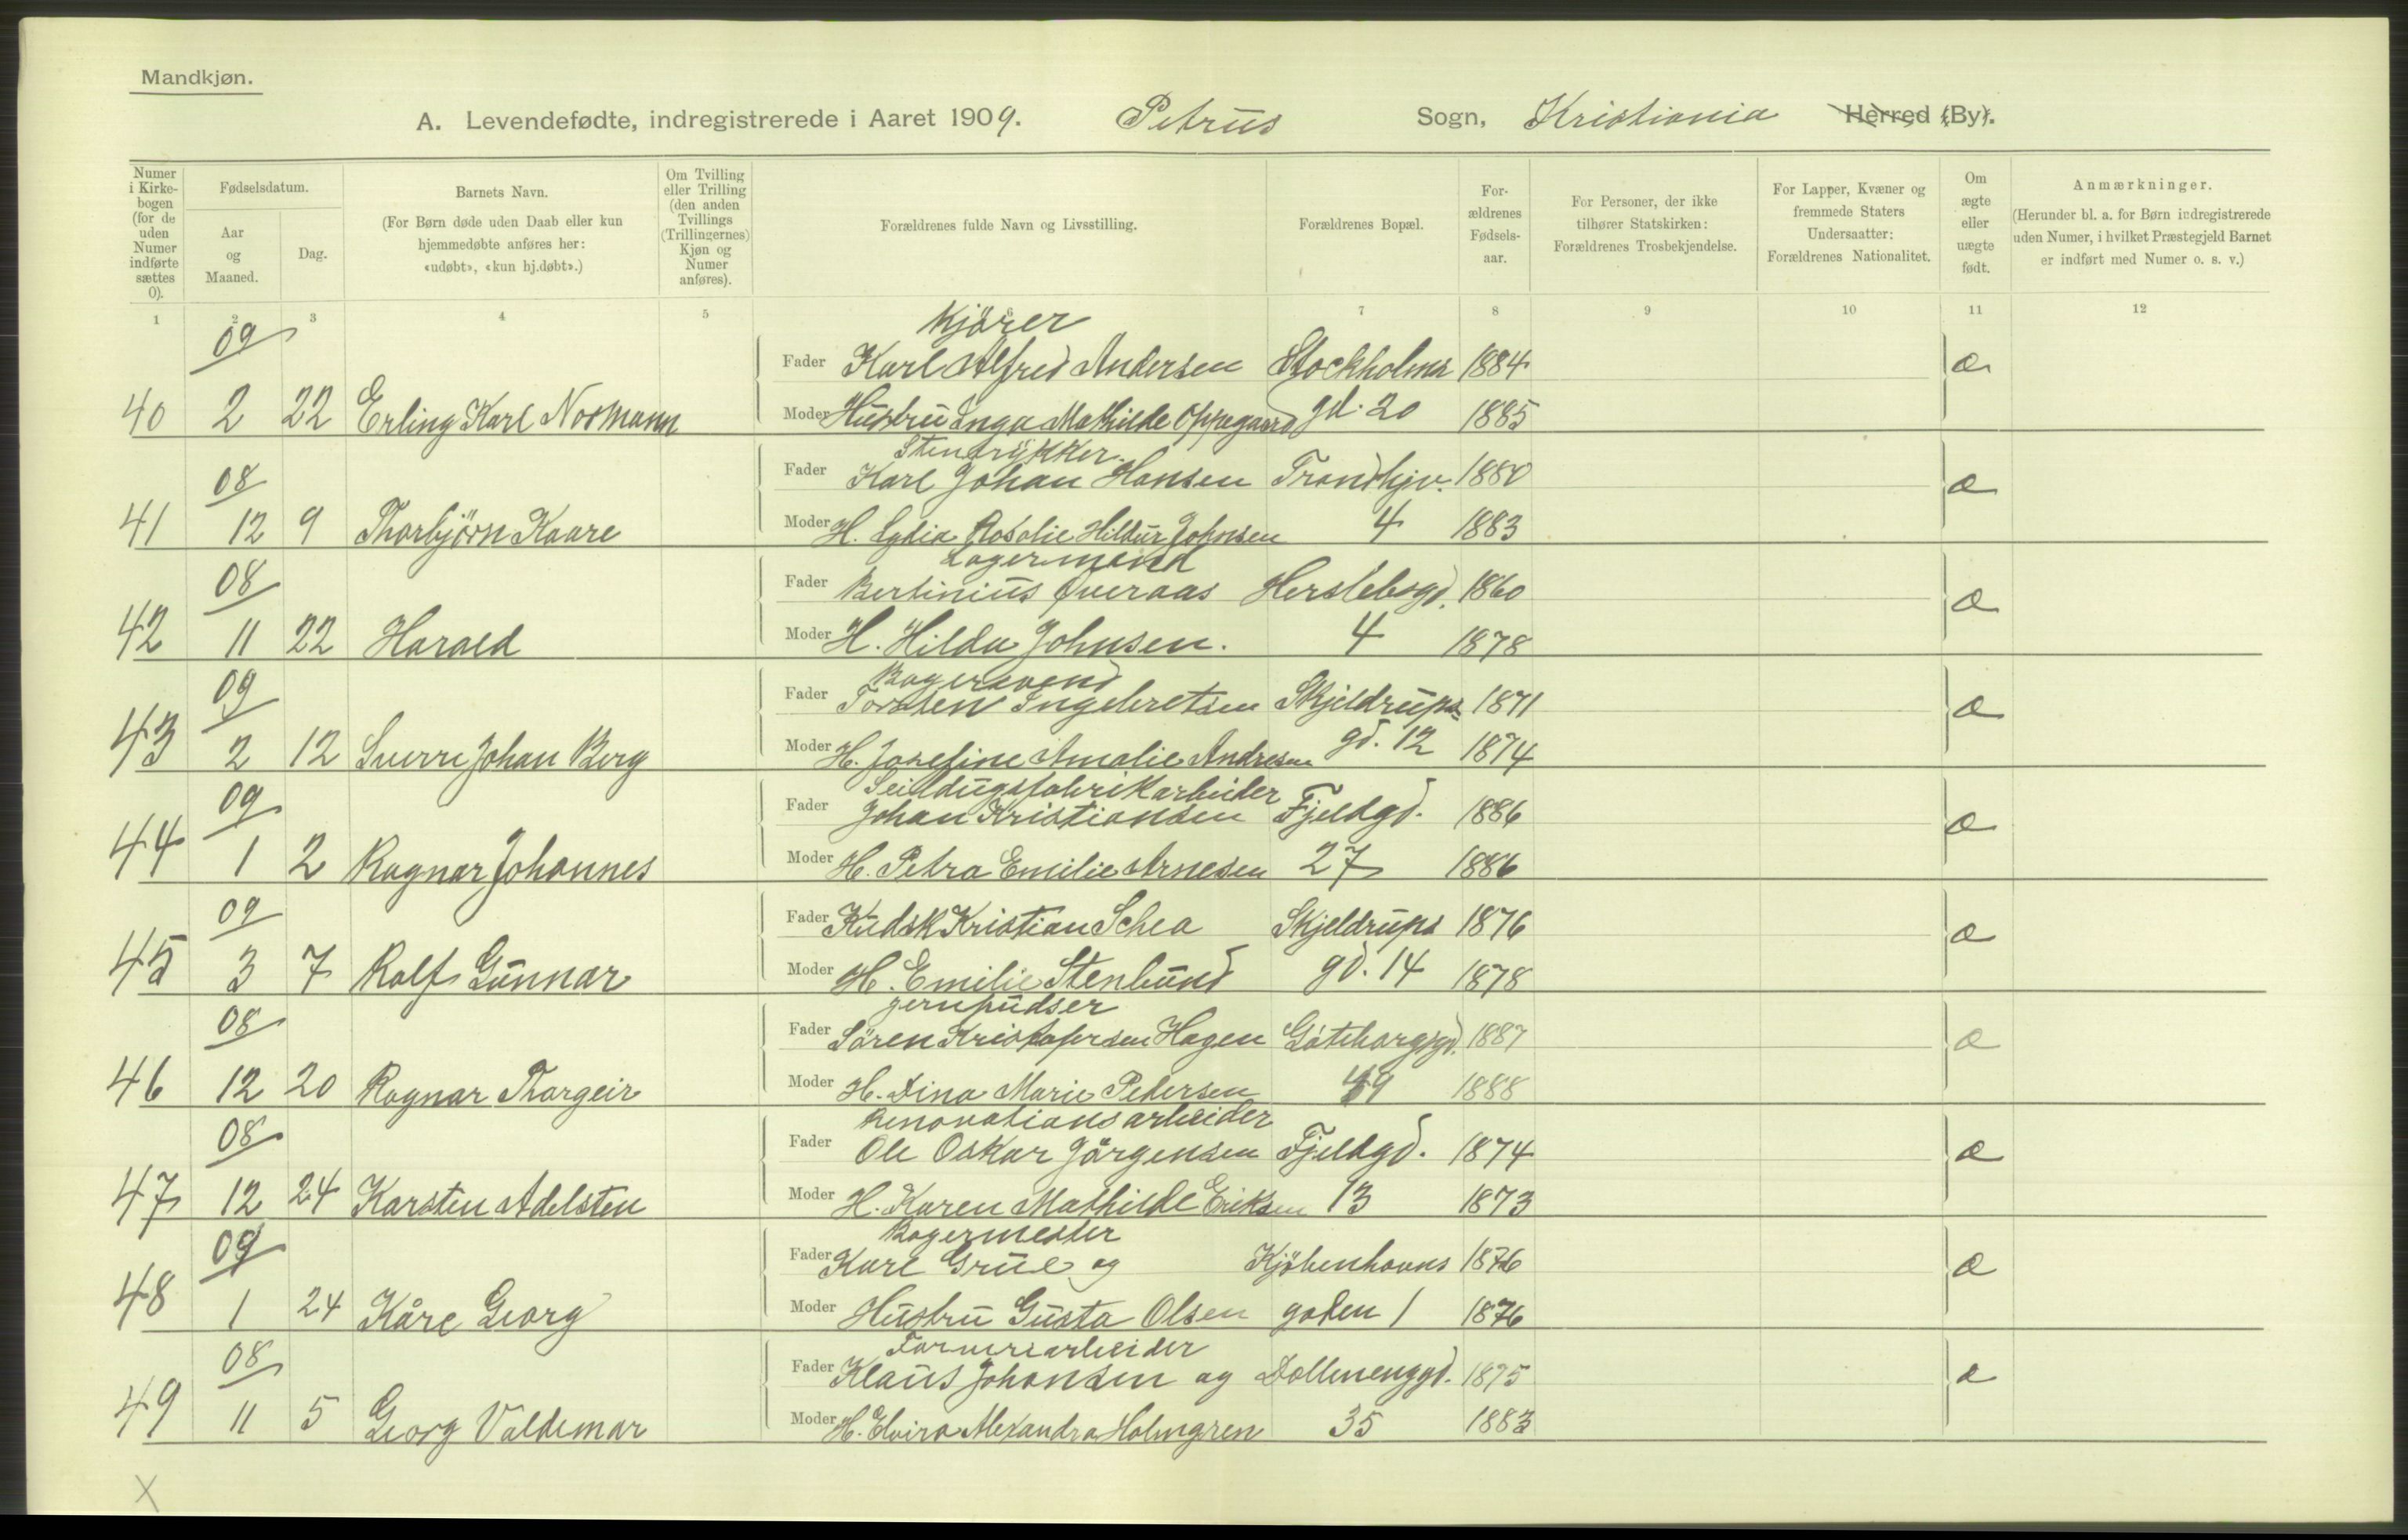 Mandkjøn.
A. Levendefødte, indregistrerede i Aaret 1909. Petrus Sogn, Kristiania Herred (By).
Numer i Kirkebogen (for de uden Numer indførte sættes 0).
Fødselsdatum.
Aar og Maaned.
Dag.
Barnets Navn.
(For Børn døde uden Daab eller kun hjemmedøbte anføres her: «udøbt», «kun hj.døbt».)
Om Tvilling eller Trilling (den anden Tvillings (Trillingernes) Kjøn og Numer anføres).
Forældrenes fulde Navn og Livsstilling.
Forældrenes Bopæl.
Forældrenes Fødselsaar.
For Personer, der ikke tilhører Statskirken: Forældrenes Trosbekjendelse.
For Lapper, Kvæner og fremmede Staters Undersaatter: Forældrenes Nationalitet.
Om ægte eller uægte født.
Anmærkninger.
(Herunder bl. a. for Børn indregistrerede uden Numer, i hvilket Præstegjeld Barnet er indført med Numer o. s. v.)
1 2 3 4 5 6 7 8 9 10 11 12
09 Kjører
Fader Karl Alfred Andersen Stockholms 1884 æ
40 2 22 Erling Karl Normann Moder Hustru Inga Mathilde Oppegaard gd. 20 1885
08 Stentrykker
Fader Karl Johan Hansen Trondhjv. 1880 æ
41 12 9 Thorbjörn Kaare Moder H. Lydia Rosalie Hildur Johnsen 4 1883
08 Lagermand
Fader Bertinius Øveraas Herslebsgd. 1860 æ
42 11 22 Harald Moder H. Hilda Johnsen. 4 1878
09 Bagersvend
Fader Torsten Ingebretsen Skjeldrups= 1871 æ
43 2 12 Sverre Johan Berg Moder H. Josefine Amalie Andresen gd. 12 1874
09 Seildugsfabrikarbeider
Fader Johan Kristiansen Fjeldgd. 1886 æ
44 1 2 Ragnar Johannes Moder H. Petra Emilie Arnesen 27 1886
09
Fader Kudsk Kristian Schea Skjeldrups 1876 æ
45 3 7 Rolf Gunnar Moder H. Emilie Stenlund gd. 14 1878
08 Jernpudser
Fader Sören Kristofersen Hagen Göteborggd. 1887 æ
46 12 20 Ragnar Thorgeir Moder H. Dina Marie Pedersen 49 1888
08 Renovationsarbeider
Fader Ole Oskar Jörgensen Fjeldgd. 1874 æ
47 12 24 Karsten Adelsten Moder H. Karen Mathilde Eriksen 13 1873
09 Bagermester
Fader Karl Grüe og Kjöbenhavns 1876 æ
48 1 24 Kåre Georg Moder Hustru Gusta Olsen gaden 1 1876
08 Farveriarbeider
Fader Klaus Johansen og Dælenenggd. 1875 æ
49 11 5 Georg Valdemar Moder H. Elvira Alexandra Holmgren 35 1883
X